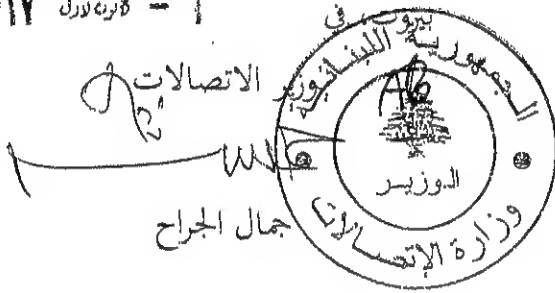 بيروت، في
١ - كانون الاول
وزير الاتصالات
جمال الجراح
الجمهورية اللبنانية
الوزير
وزارة الإتصالات